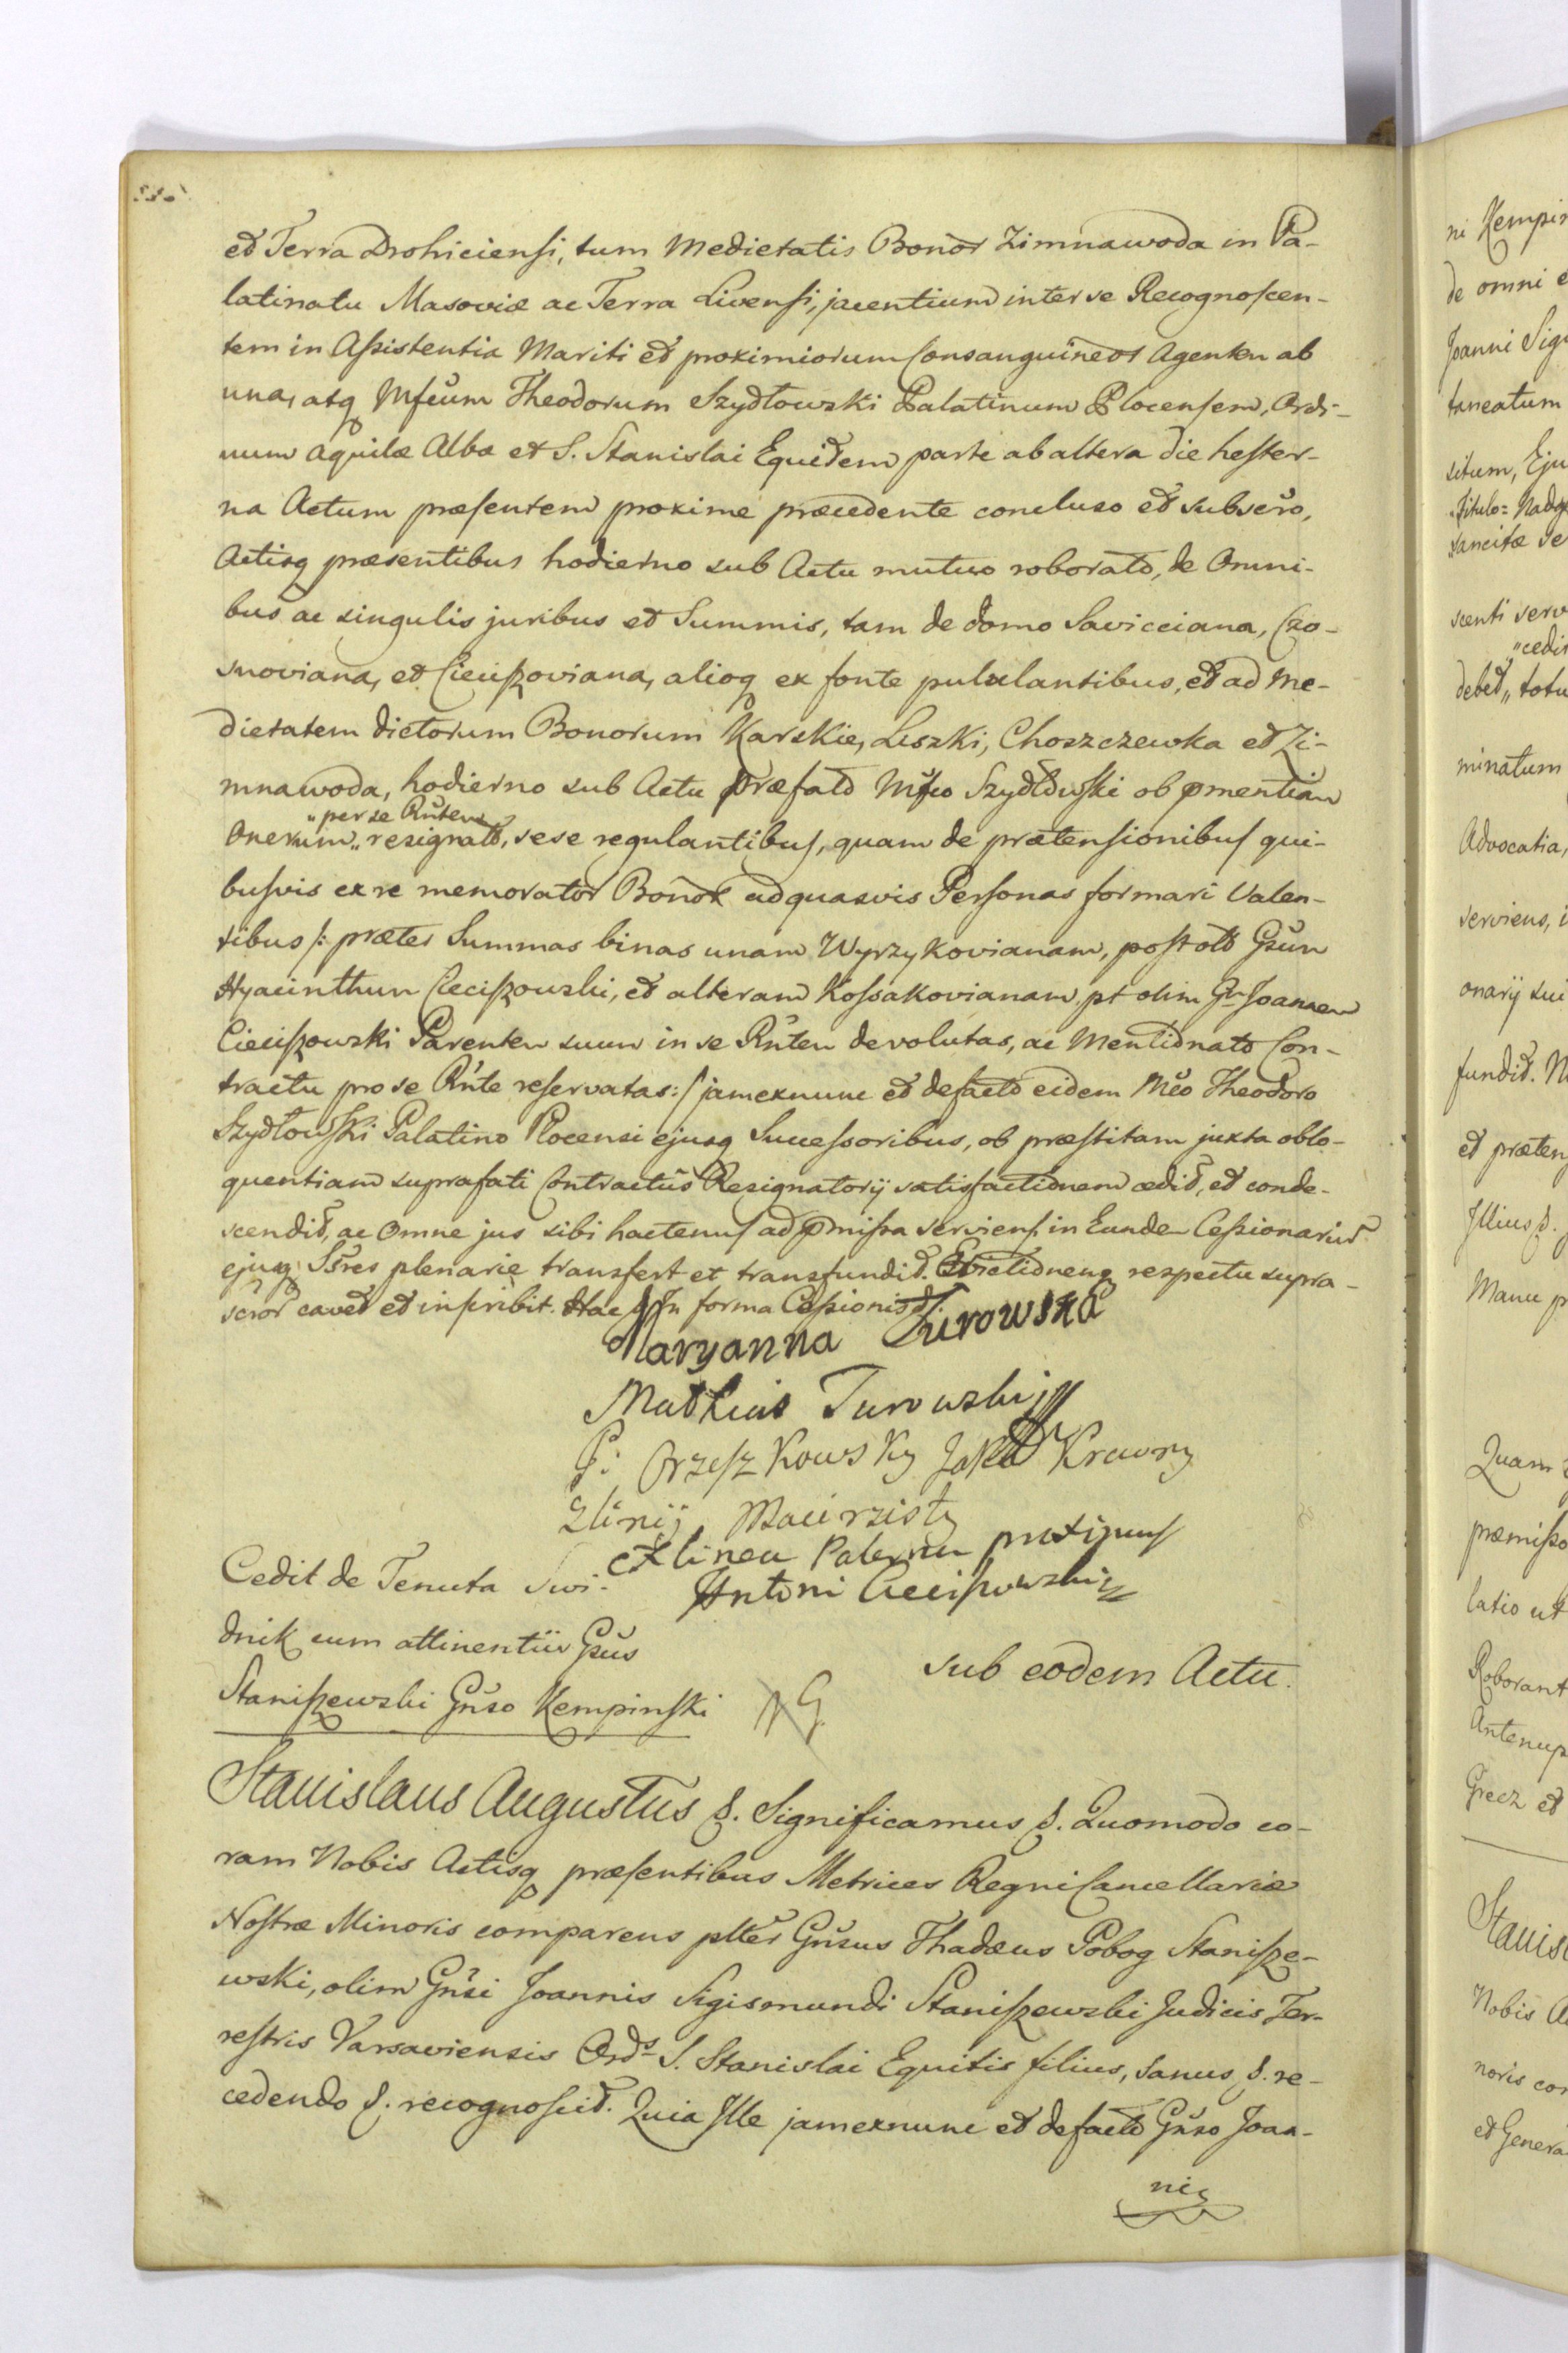 et Terra Drohiciensi, tum Medietatis Bonor Zimnawoda in Pa-
latinatu Masoviæ ac Terra Livensi, jacentium inter se Recognoscen-
tem in Assistentia Mariti et proximiorum Consanguineor Agenten ab
una, atq Mfcum Theodorum Szydłowski Palatinum Plocensem, Ordi-
num Aquilæ Albæ et S. Stanislai Equitem parte ab altera die hester-
na Actum præsentem proxime præcedente concluso et subscro,
Actisq præsentibus hodierno sub Actu mutuo roborato, de Omni-
bus ac singulis juribus et Summis, tam de domo Savicciana, Czo-
snoviana, et Cieciszoviana, alioq ex fonte pululantibus, et ad Me-
dietatem dictorum Bonorum Karskie, Liszki, Choszczewka et Zi-
mnawoda, hodierno sub Actu Præfato Mfco Szydłowski ob pmentian
„per se Rnten
Onerum„ resignato, sese regulantibus, quam de prætensionibus qui-
busvis ex re memorator Bonor ad quasvis Personas formari Valen-
tibus /: præter Summas binas unam Wyrzykovianam, post olt Gsun
Hyacinthun Cieciszowski, et alteram Kossakovianam, pt olim Gn Joannen
Cieciszowski Parenten suum in se Rnten devolutas, ac Mentionato Con-
tractu pro se Rnte reservatas :/ jamexnunc et defacto eidem Mfco Theodoro
Szydłowski Palatino Plocensi ejusq Successoribus, ob præstitam juxta oblo-
quentiam suprafati Contractus Resignatorij satisfactionem cedit, et conde-
scendit, ac Omne jus sibi hactenus ad pmissa serviens in Eunden Cessionariu
ejusq Ssres plenarie transfert et transfundit. Evictionenq respectu supra-
scror cavet et inscribit. Hac In forma Cessionis &.
Maryanna Turowska
Mathias Turowski
P: Orzeszkowsky Jako Krewny
z linij Macirzisty
ex linea Paterna proximus
Antoni Cieciszowski
Cedit de Tenuta Swi-
dnik cum attinentiis Gsus
Staniszewski Gnso Kempinski
sub eodem Actu.
Stanislaus Augustus &. Significamus &. Quomodo co-
ram Nobis Actisq præsentibus Metrices Regni Cancellariæ
Nostræ Minoris comparens plter Gnsus Thadæus Pobog Stanisze-
wski, olim Gnsi Joannis Sigismundi Staniszewski Judicis Ter-
restris Varsaviensis Ords S. Stanislai Equitis filius, sanus &. re-
cedendo &. recognoscit. Quia Ille jamexnunc et defacto Gnso Joan-
ni
ni Kempin
de omni e
Joanni Sigi
taneatum
situm, Eju
scenti serv
debet„ totu
minatum
Advocatia,
serviens, i
onarij sui
fundit. N
et præten
Illius &.
Manu p
Quam
præmisso
latio ut
Roborant
Antenup
Grecz et
Stanisl
Nobis A
noris co
et Genera